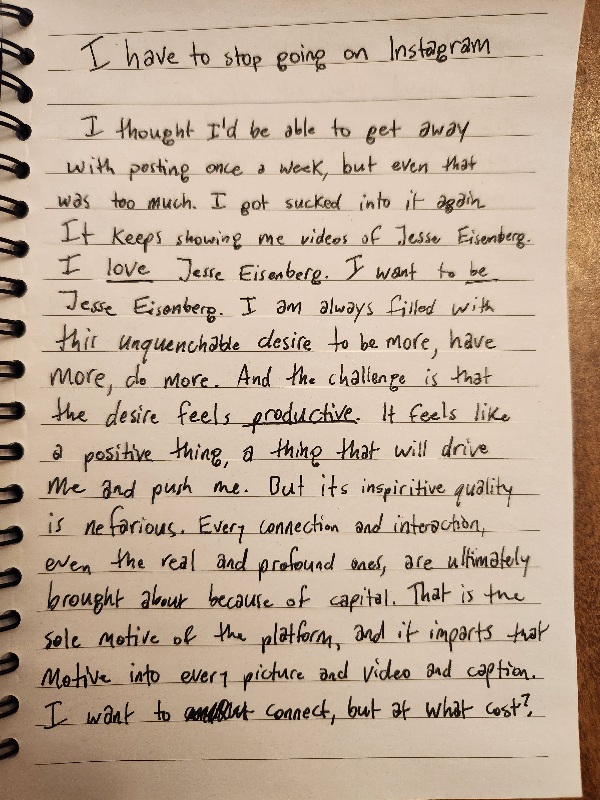 I have to stop going on Instagram
I thought I'd be able to get away
with posting once a week, but even that
was too much. I got sucked into it again
It keeps showing me videos of Jesse Eisenberg.
I love Jesse Eisenberg. I want to be
Jesse Eisenberg. I am always filled with
this unquenchable desire to be more, have
more, do more. And the challenge is that
the desire feels productive. It feels like
a positive thing, a thing that will drive
me and push me. But its inspiritive quality
is nefarious. Every connection and interaction,
even the real and profound ones, are ultimately
brought about because of capital. That is the
sole motive of the platform, and it imparts that
motive into every picture and video and caption.
I want to connect, but at what cost?